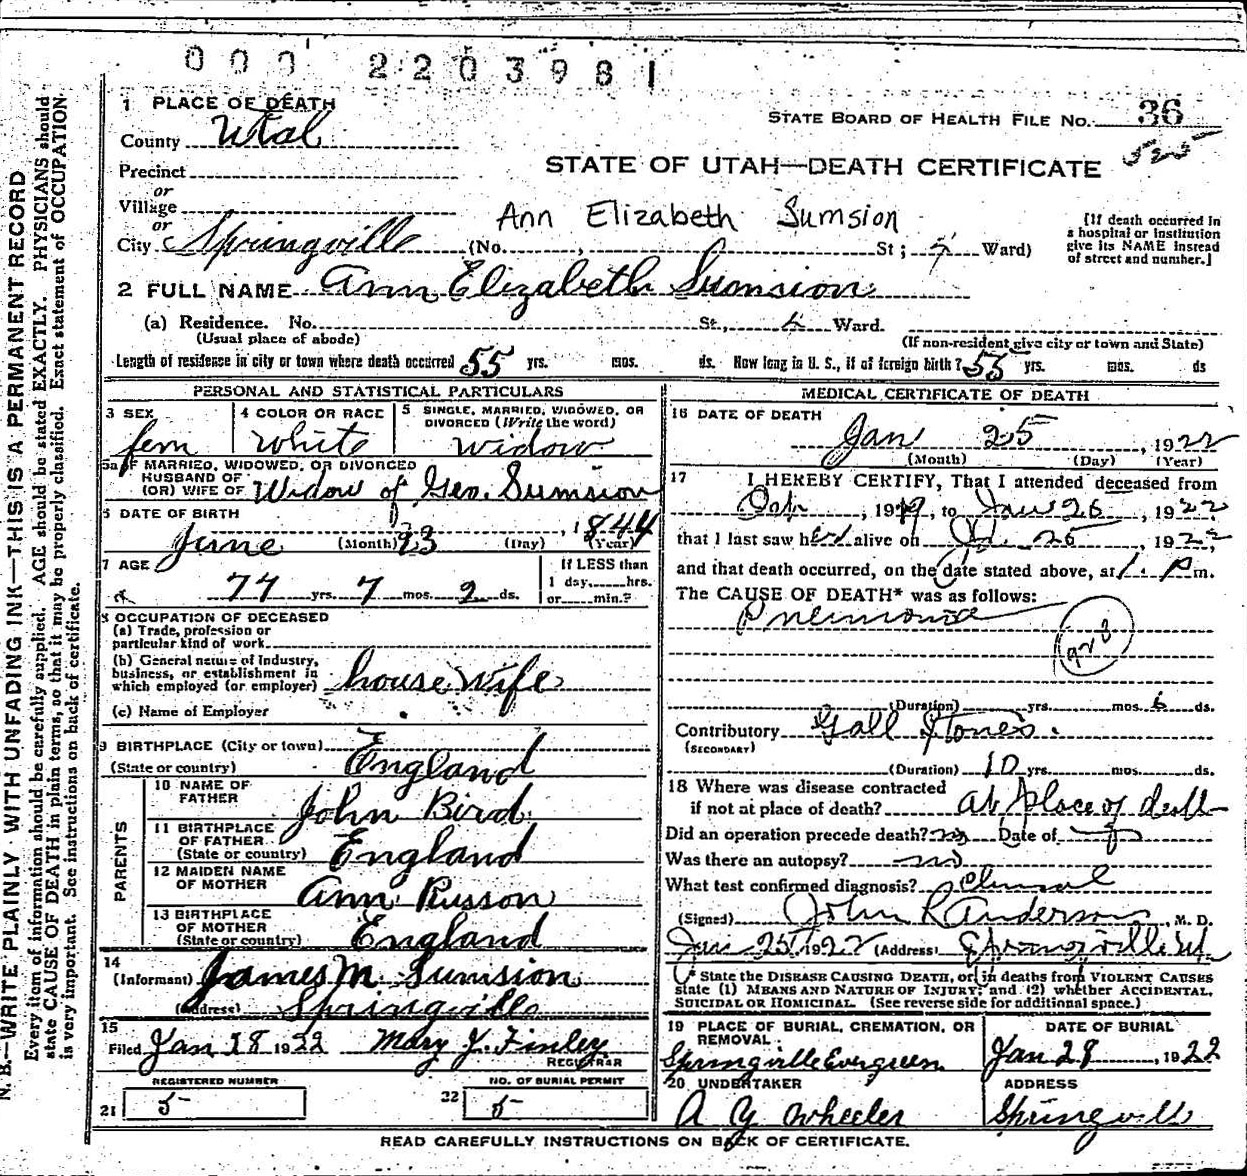 000 2203981
1 PLACE OF DEATH
STATE BOARD OF HEALTH FILE NO. 36
County Utah
525
STATE OF UTAH—DEATH CERTIFICATE
Precinct
or
Village
or
Ann Elizabeth Sumsion
City Springville (No. , St; Ward)
[If death occurred in
a hospital or institution
give its NAME instead
of street and number.]
2 FULL NAME Ann Elizabeth Sumsion
(a) Residence. No. St., Ward.
(Usual place of abode) (If non-resident give city or town and State)
Length of residence in city or town where death occurred 55 yrs. mos. ds. How long in U. S., if of foreign birth? 55 yrs. mos. ds
PERSONAL AND STATISTICAL PARTICULARS
3 SEX
fem
4 COLOR OR RACE
White
5 SINGLE, MARRIED, WIDOWED, OR
DIVORCED (Write the word)
Widow
5a IF MARRIED, WIDOWED, OR DIVORCED
HUSBAND OF
(OR) WIFE OF Widow of Geo. Sumsion
6 DATE OF BIRTH
June (Month) 23 (Day) , 1844 (Year)
7 AGE
77 yrs. 7 mos. 2 ds.
If LESS than
1 day, hrs.
or min.?
8 OCCUPATION OF DECEASED
(a) Trade, profession or
particular kind of work
(b) General nature of Industry,
business, or establishment in
which employed (or employer) house wife
(c) Name of Employer
9 BIRTHPLACE (City or town)
(State or country) England
PARENTS
10 NAME OF
FATHER John Bird
11 BIRTHPLACE
OF FATHER
(State or country) England
12 MAIDEN NAME
OF MOTHER Ann Russon
13 BIRTHPLACE
OF MOTHER
(State or country) England
14
(Informant) James M. Sumsion
(Address) Springville
15
Filed Jan 28 1922 Mary J. Finley
REGISTRAR
REGISTERED NUMBER
21 5
NO. OF BURIAL PERMIT
22 5
MEDICAL CERTIFICATE OF DEATH
16 DATE OF DEATH
Jan 25, 1922
(Month) (Day) (Year)
17 I HEREBY CERTIFY, That I attended deceased from
, 1919, to Jan 26, 1922
that I last saw her alive on 25, 1922
and that death occurred, on the date stated above, at 1. P m.
The CAUSE OF DEATH* was as follows:
Pneumonia
928
(Duration) yrs. mos. 6 ds.
Contributory Gall Stones.
(SECONDARY)
(Duration) 10 yrs. mos. ds.
18 Where was disease contracted
if not at place of death? at place of death
Did an operation precede death? no Date of
Was there an autopsy? no
What test confirmed diagnosis? Clinical
(Signed) John R Anderson, M. D.
Jan 25, 1922 (Address) Springville Ut.
* State the DISEASE CAUSING DEATH, or in deaths from VIOLENT CAUSES
state (1) MEANS AND NATURE OF INJURY; and (2) whether ACCIDENTAL,
SUICIDAL OR HOMICIDAL. (See reverse side for additional space.)
19 PLACE OF BURIAL, CREMATION, OR
REMOVAL
Springville Evergreen
DATE OF BURIAL
Jan 28, 1922
20 UNDERTAKER
A Y Wheeler
ADDRESS
Springville
READ CAREFULLY INSTRUCTIONS ON BACK OF CERTIFICATE.
N. B.—WRITE PLAINLY WITH UNFADING INK—THIS IS A PERMANENT RECORD
Every item of information should be carefully supplied. AGE should be stated EXACTLY. PHYSICIANS should
state CAUSE OF DEATH in plain terms, so that it may be properly classified. Exact statement of OCCUPATION
is very important. See instructions on back of certificate.